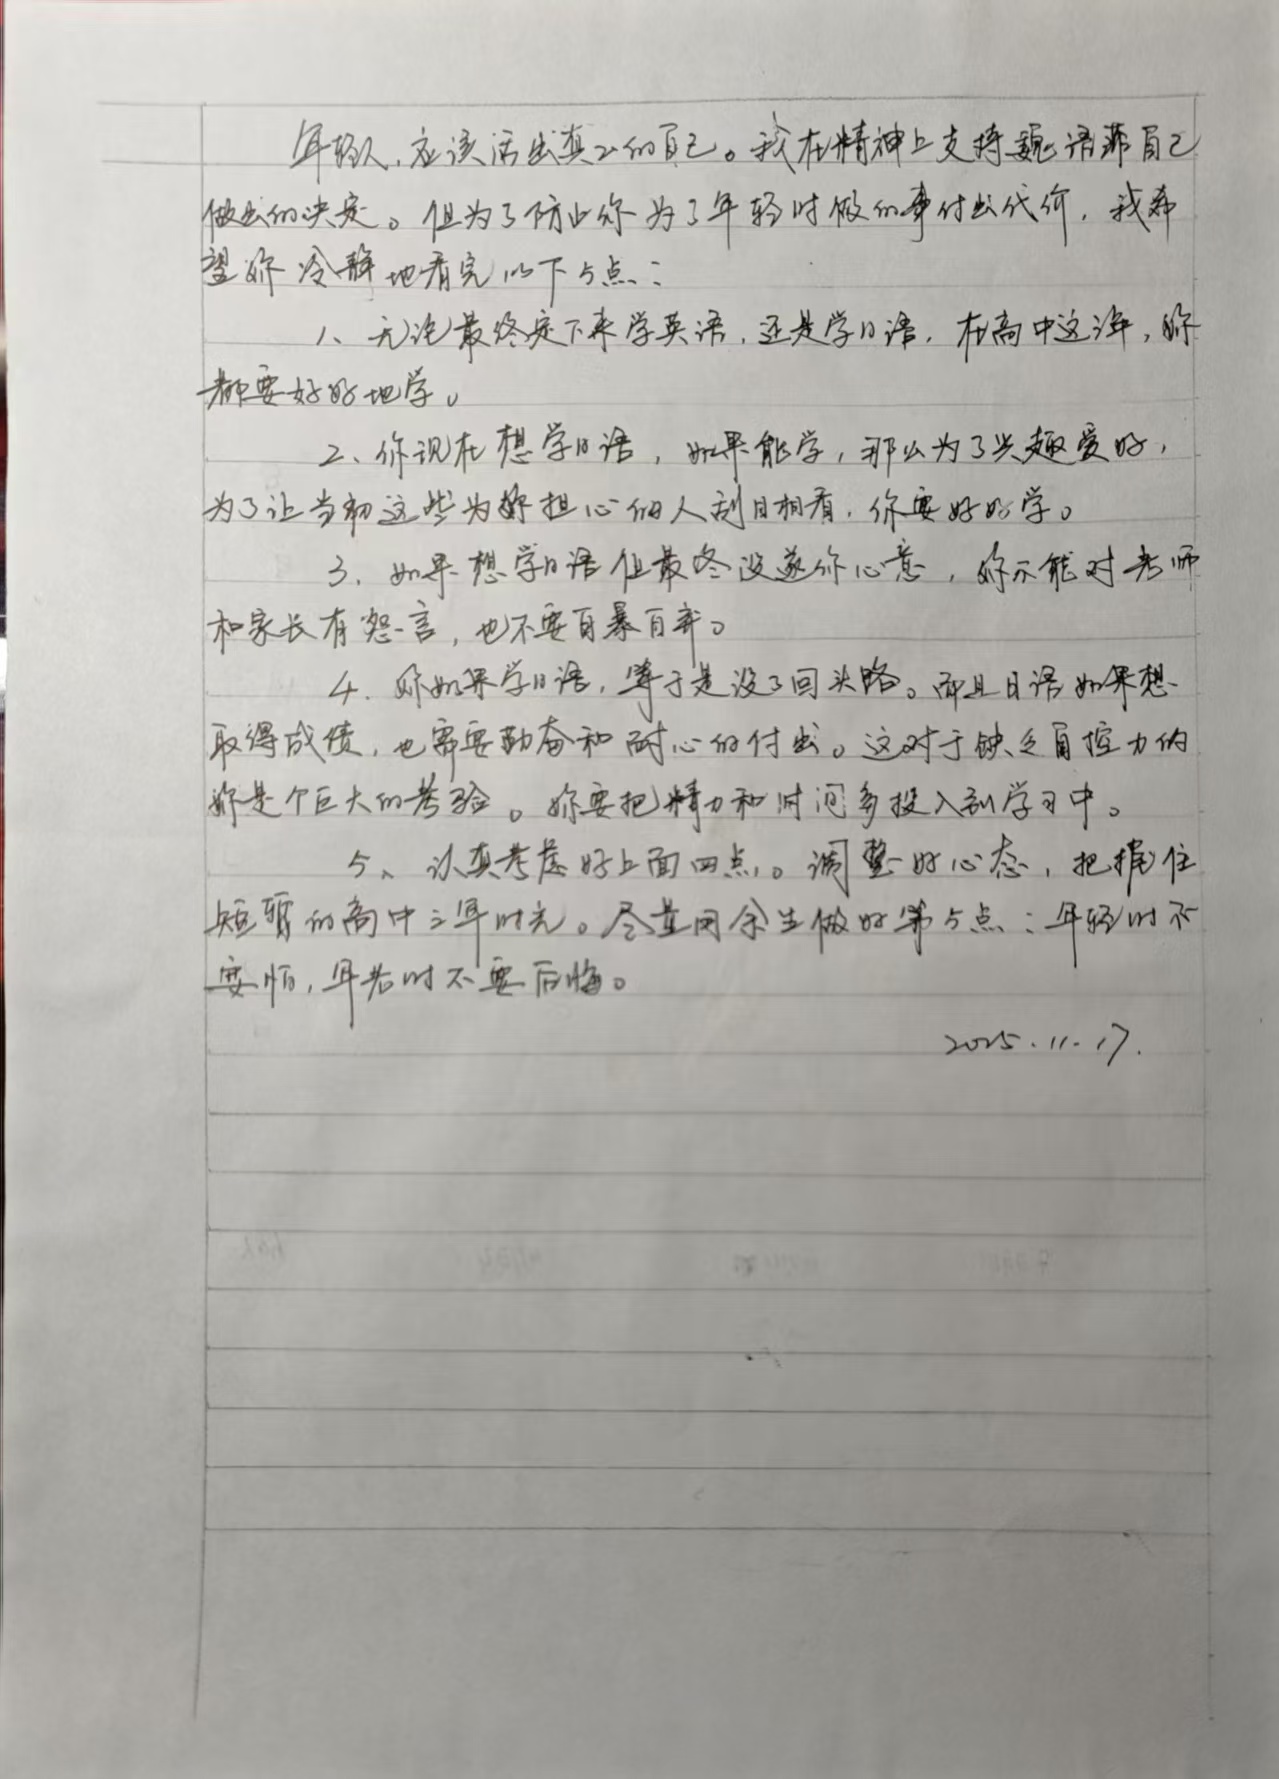 年轻人，应该活出真正的自己。我在精神上支持魏语菲自己
做出的决定。但为了防止你为了年轻时做的事付出代价，我希
望你冷静地看完以下5点：
1、无论最终定下来学英语，还是学日语，在高中这三年，你
都要好好地学。
2、你现在想学日语，如果能学，那么为了兴趣爱好，
为了让当初这些为你担心的人刮目相看，你要好好学。
3、如果想学日语但最终没遂你心意，你不能对老师
和家长有怨言，也不要自暴自弃。
4、你如果学日语，等于是没了回头路。而且日语如果想
取得成绩，也需要勤奋和耐心的付出。这对于缺乏自控力的
你是个巨大的考验。你要把精力和时间多投入到学习中。
5、认真考虑好上面四点。调整好心态，把握住
短暂的高中三年时光。尽量用余生做好第5点：年轻时不
要怕，年老时不要后悔。
2025.11.17.